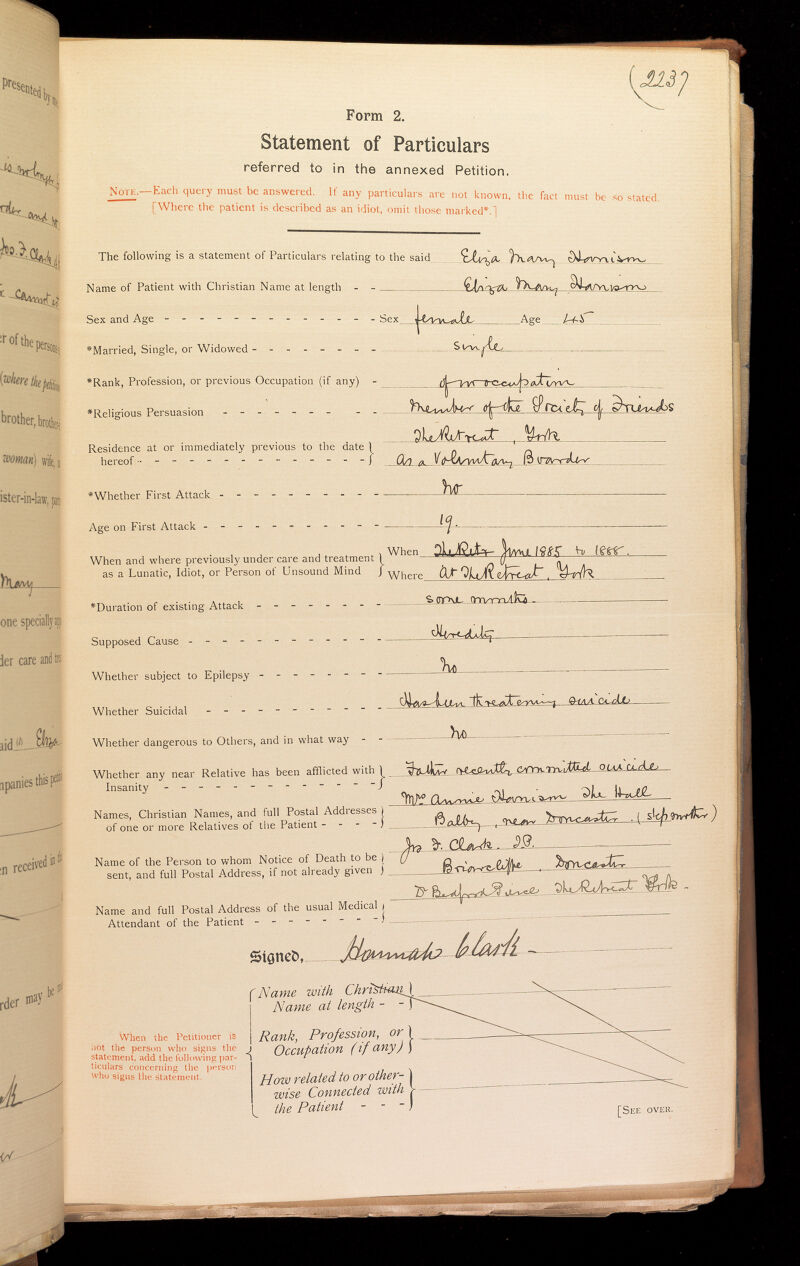 (2237
Form 2.
Statement of Particulars
referred to in the annexed Petition.
NOTE.—Each query must be answered. If any particulars are not known, the fact must be so stated.
[Where the patient is described as an idiot, omit those marked*.]
The following is a statement of Particulars relating to the said Eliza Mary Harrison
Name of Patient with Christian Name at length - - Eliza Mary Harrison
Sex and Age - - - - - - - - - - - - - Sex female Age 45
*Married, Single, or Widowed - - - - - - - - single
*Rank, Profession, or previous Occupation (if any) - of no occupation
*Religious Persuasion - - - - - - - - - Member of the Society of Friends
The Retreat, York
Residence at or immediately previous to the date
hereof - - - - - - - - - - - - - - As a Voluntary Boarder
*Whether First Attack - - - - - - - - - - no
Age on First Attack - - - - - - - - - - - 19.
When and where previously under care and treatment When June 1885 to 1888.
as a Lunatic, Idiot, or Person of Unsound Mind Where At The Retreat, York
*Duration of existing Attack - - - - - - - some months.
Supposed Cause - - - - - - - - - - - - Heredity
Whether subject to Epilepsy - - - - - - - - no
Whether Suicidal - - - - - - - - - - - Has been threatening suicide
Whether dangerous to Others, and in what way - - No
Whether any near Relative has been afflicted with Father recently committed suicide
Insanity - - - - - - - - - - - - -
Mrs Annie Harrison The Hall
Names, Christian Names, and full Postal Addresses
of one or more Relatives of the Patient - - - - Balby, near Doncaster. (stepmother)
Jos F. Clark. J.P.
Name of the Person to whom Notice of Death to be
sent, and full Postal Address, if not already given Briarcliffe, Doncaster
Dr Bedford Pierce The Retreat York -
Name and full Postal Address of the usual Medical
Attendant of the Patient - - - - - - - -
Signed, Hannah Clark -
Name with Christian
Name at length - -
When the Petitioner is
not the person who signs the
statement, add the following par-
ticulars concerning the person
who signs the statement.
Rank, Profession, or
Occupation (if any)
How related to or other-
wise Connected with
the Patient - - -
[SEE OVER.
presented by
is no longer
order and
Jos. F. Clark
cannot
r of the person
(where the petition
brother, brother
woman) wife,
ister-in-law,
Mary
one specially
der care and
aid Eliza
panies this
n received in
rder may be